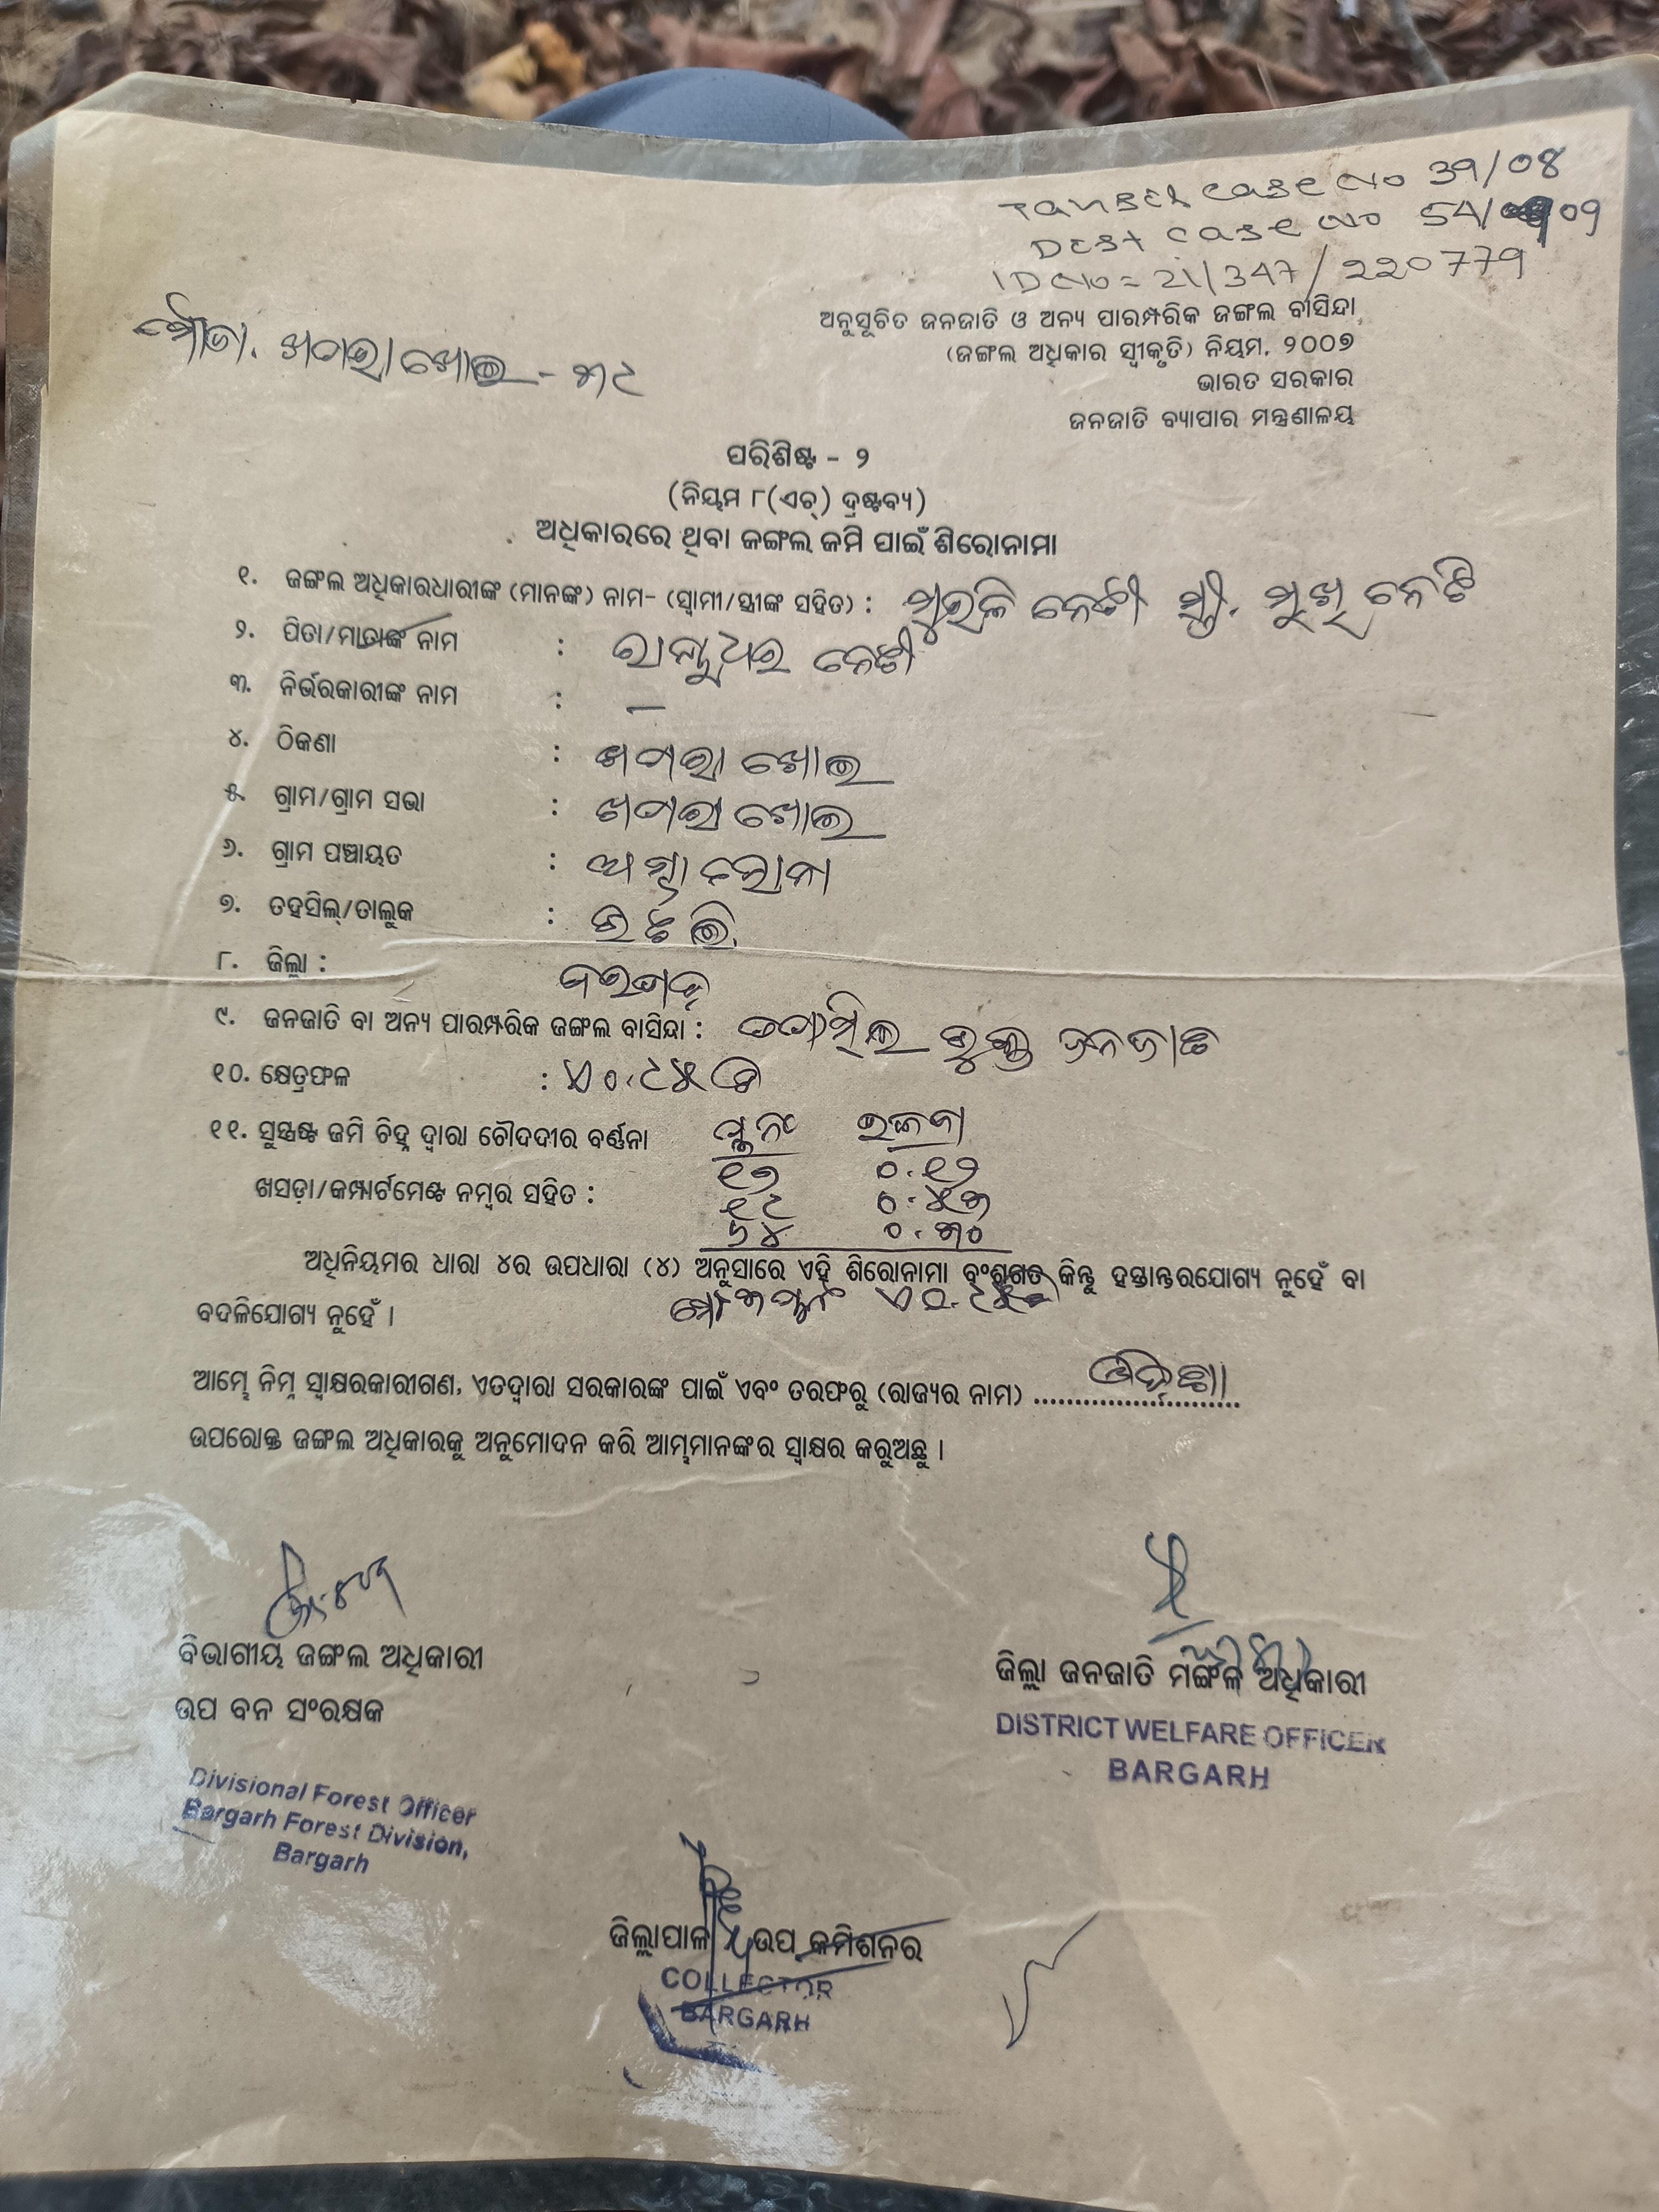 Case No 39/08
Dist Case No 54/09
ID No = 21/347/220779
ମୌଜା. ଖପରାଖୋଲ - ୩୯
ଅନୁସୂଚିତ ଜନଜାତି ଓ ଅନ୍ୟ ପାରମ୍ପରିକ ଜଙ୍ଗଲ ବାସିନ୍ଦା
(ଜଙ୍ଗଲ ଅଧିକାର ସ୍ୱୀକୃତି) ନିୟମ, ୨୦୦୭
ଭାରତ ସରକାର
ଜନଜାତି ବ୍ୟାପାର ମନ୍ତ୍ରଣାଳୟ
ପରିଶିଷ୍ଟ - ୨
(ନିୟମ ୮(ଏଚ୍) ଦ୍ରଷ୍ଟବ୍ୟ)
ଅଧିକାରରେ ଥିବା ଜଙ୍ଗଲ ଜମି ପାଇଁ ଶିରୋନାମା
୧. ଜଙ୍ଗଲ ଅଧିକାରଧାରୀଙ୍କ (ମାନଙ୍କ) ନାମ- (ସ୍ୱାମୀ/ସ୍ତ୍ରୀଙ୍କ ସହିତ) : ମୁରଲି ନେଟୀ ସ୍ତ୍ରୀ.
୨. ପିତା/ମାତାଙ୍କ ନାମ :
୩. ନିର୍ଭରକାରୀଙ୍କ ନାମ : —
୪. ଠିକଣା : ଖପରା ଖୋଲ
୫. ଗ୍ରାମ/ଗ୍ରାମ ସଭା : ଖପରା ଖୋଲ
୬. ଗ୍ରାମ ପଞ୍ଚାୟତ :
୭. ତହସିଲ୍/ତାଲୁକ : ଭଟଲି
୮. ଜିଲ୍ଲା : ବରଗଡ଼
୯. ଜନଜାତି ବା ଅନ୍ୟ ପାରମ୍ପରିକ ଜଙ୍ଗଲ ବାସିନ୍ଦା : ଭୁକ୍ତ ଜନଜାତି
୧୦. କ୍ଷେତ୍ରଫଳ : ଏ୦.୯୫ ଡି
୧୧. ସୁସ୍ପଷ୍ଟ ଜମି ଚିହ୍ନ ଦ୍ୱାରା ଚୌଦଦୀର ବର୍ଣ୍ଣନା ପ୍ଲଟ ନଂ ରକବା
୧୭ ୦.୧୨
ଖସଡ଼ା/କମ୍ପାର୍ଟମେଣ୍ଟ ନମ୍ବର ସହିତ : ୧୯ ୦.୫୩
୬୪ ୦.୩୦
ଅଧିନିୟମର ଧାରା ୪ର ଉପଧାରା (୪) ଅନୁସାରେ ଏହି ଶିରୋନାମା ବଂଶଗତ କିନ୍ତୁ ହସ୍ତାନ୍ତରଯୋଗ୍ୟ ନୁହେଁ ବା
ବଦଳିଯୋଗ୍ୟ ନୁହେଁ ।
ଆମ୍ଭେ ନିମ୍ନ ସ୍ୱାକ୍ଷରକାରୀଗଣ, ଏତଦ୍ୱାରା ସରକାରଙ୍କ ପାଇଁ ଏବଂ ତରଫରୁ (ରାଜ୍ୟର ନାମ) ଓଡ଼ିଶା
ଉପରୋକ୍ତ ଜଙ୍ଗଲ ଅଧିକାରକୁ ଅନୁମୋଦନ କରି ଆମ୍ଭମାନଙ୍କର ସ୍ୱାକ୍ଷର କରୁଅଛୁ ।
ବିଭାଗୀୟ ଜଙ୍ଗଲ ଅଧିକାରୀ
ଉପ ବନ ସଂରକ୍ଷକ
Divisional Forest Officer
Bargarh Forest Division,
Bargarh
ଜିଲ୍ଲା ଜନଜାତି ମଙ୍ଗଳ ଅଧିକାରୀ
DISTRICT WELFARE OFFICER
BARGARH
ଜିଲ୍ଲାପାଳ / ଉପ କମିଶନର
COLLECTOR
BARGARH